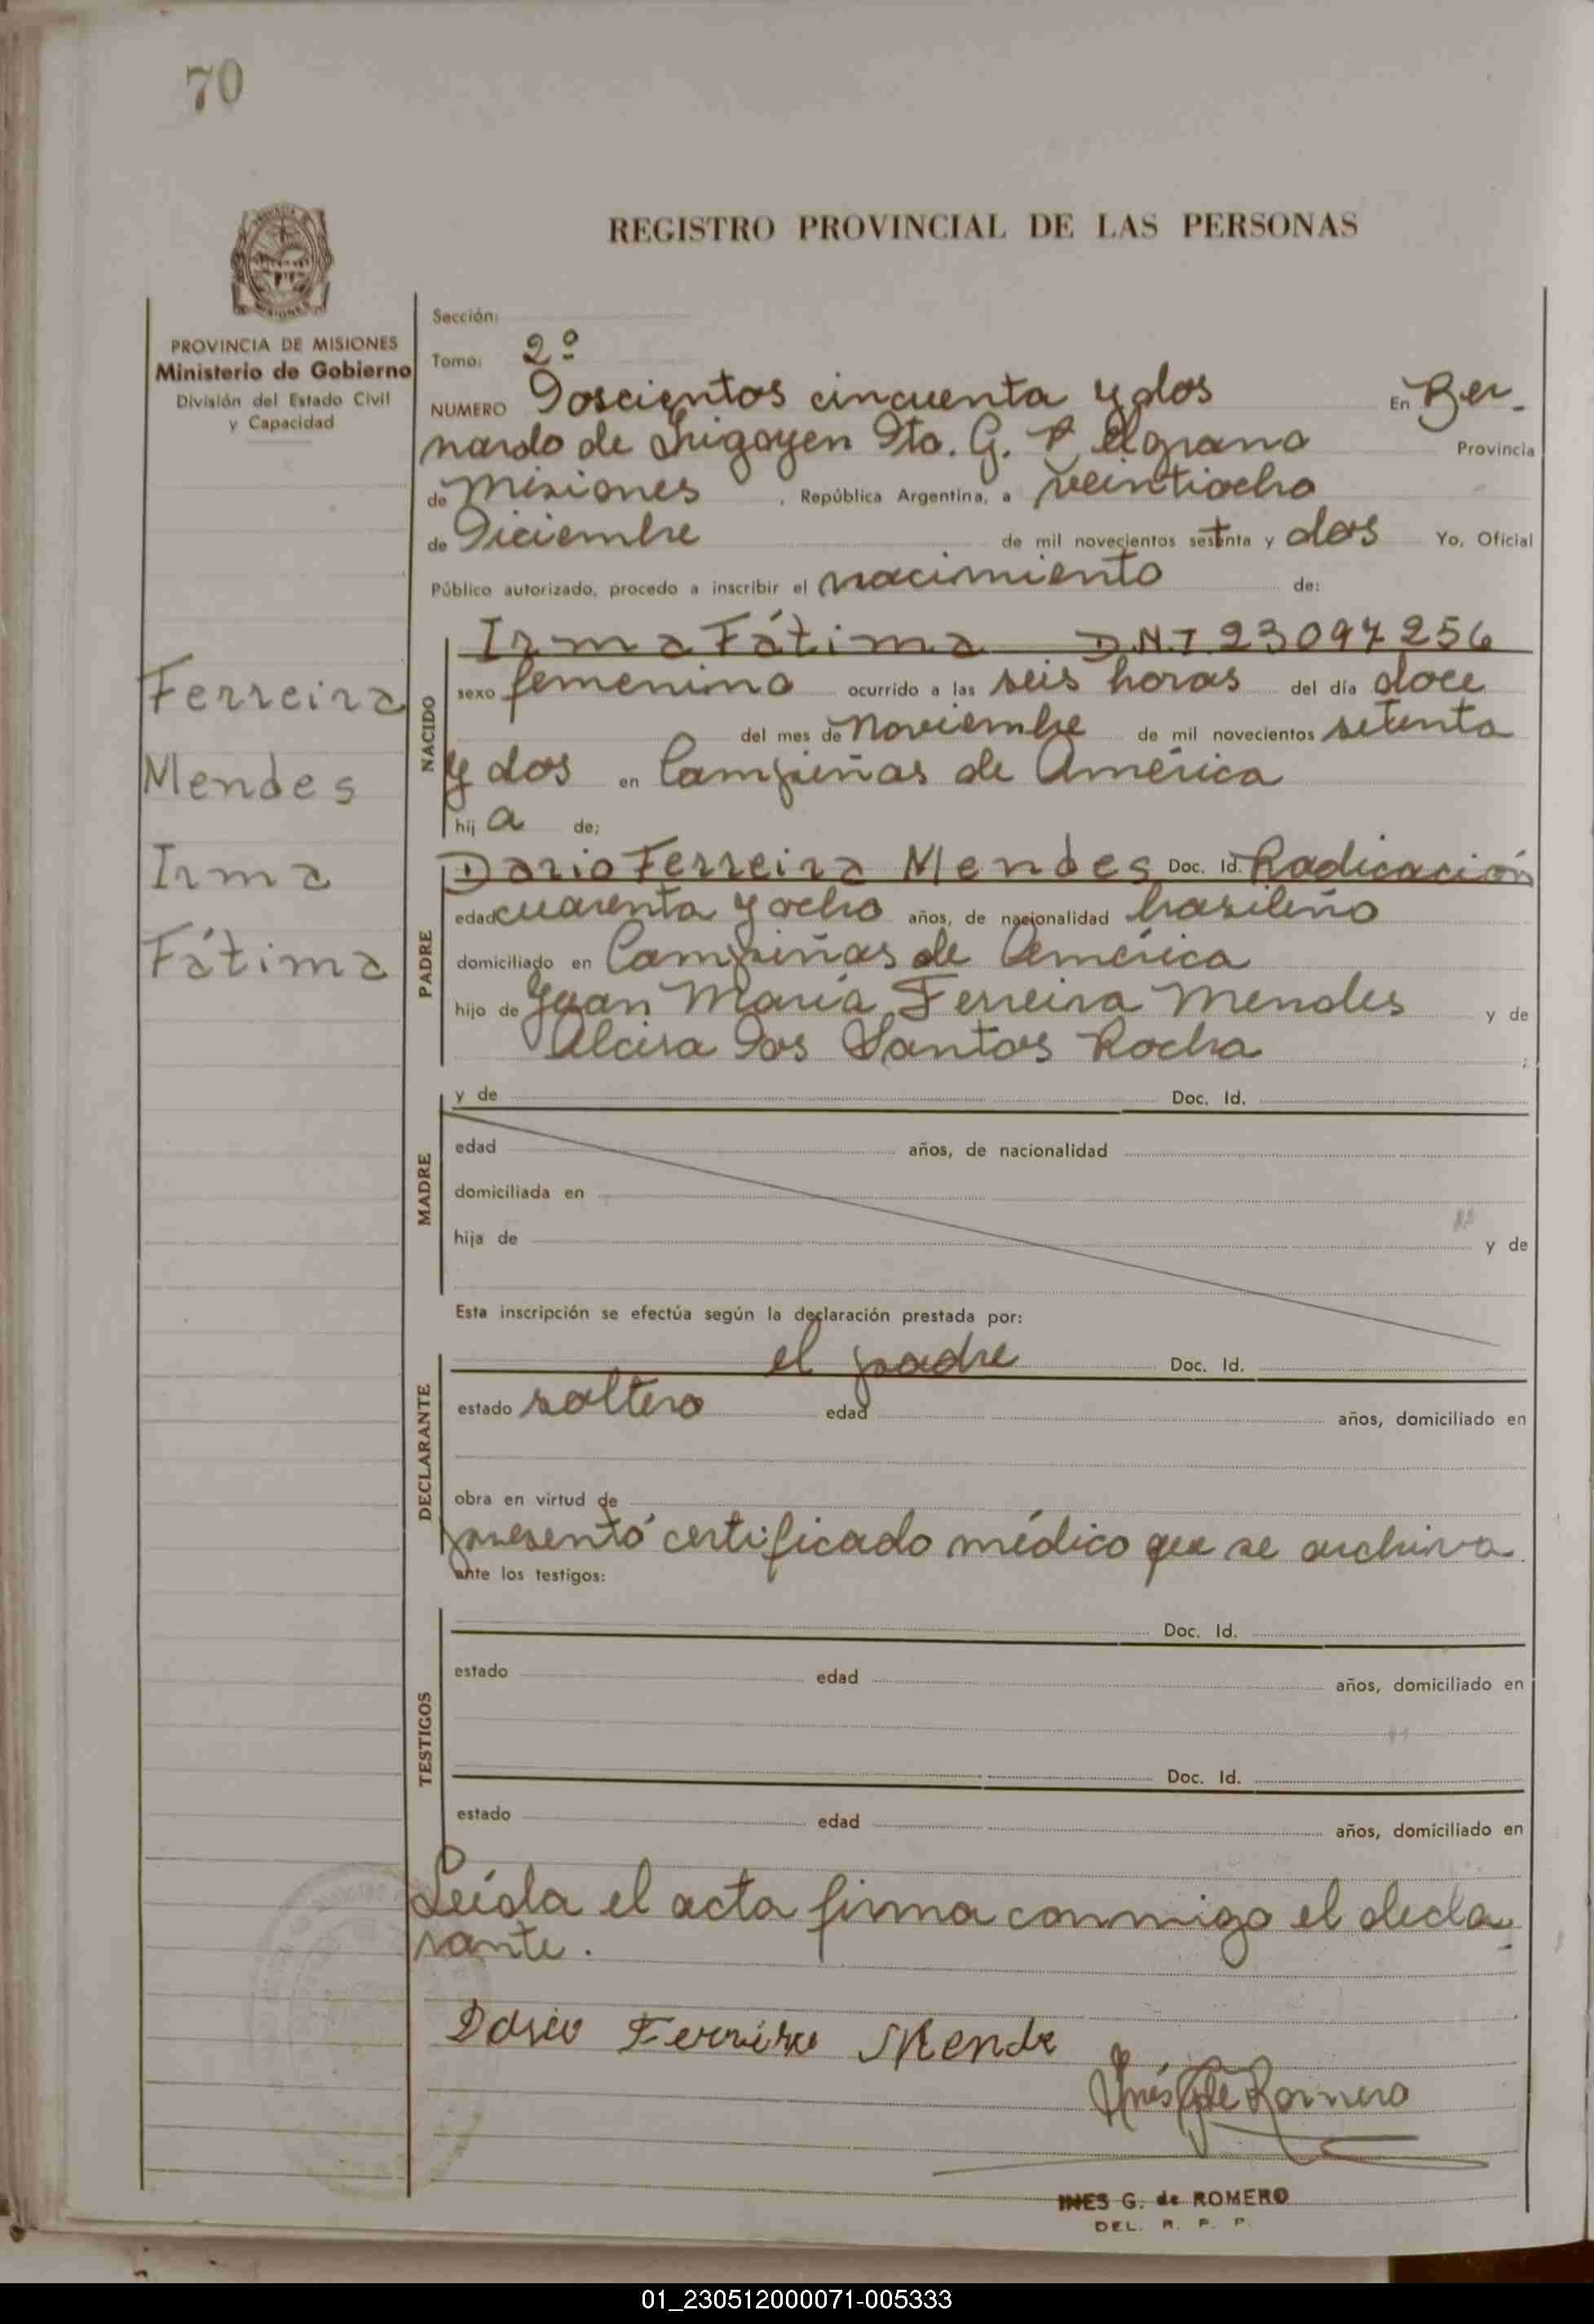 70
REGISTRO PROVINCIAL DE LAS PERSONAS
PROVINCIA DE MISIONES
Ministerio de Gobierno
División del Estado Civil
y Capacidad
Sección:
Tomo: 2º
NUMERO Doscientos cincuenta y dos En Ber-
nardo de Irigoyen Dto. G. Belgrano Provincia
de Misiones, República Argentina, a veintiocho
de Diciembre de mil novecientos setenta y dos Yo, Oficial
Público autorizado, procedo a inscribir el nacimiento de:
Ferreira
Mendes
Irma
Fátima
NACIDO
Irma Fátima D.N.I 23097256
sexo femenino ocurrido a las seis horas del día doce
del mes de Noviembre de mil novecientos setenta
y dos en Campiñas de América
hij a de:
PADRE
Dario Ferreira Mendes Doc. Id. Radicación
edad cuarenta y ocho años, de nacionalidad brasileño
domiciliado en Campiñas de América
hijo de Juan María Ferreira Mendes y de
Alcira Dos Santos Rocha ;
MADRE
y de Doc. Id.
edad años, de nacionalidad
domiciliada en
hija de y de
Esta inscripción se efectúa según la declaración prestada por:
DECLARANTE
el padre Doc. Id.
estado soltero edad años, domiciliado en
obra en virtud de
presentó certificado médico que se archiva
ante los testigos:
TESTIGOS
Doc. Id.
estado edad años, domiciliado en
Doc. Id.
estado edad años, domiciliado en
Leída el acta firma conmigo el decla-
rante.
Dario Ferreira Mende
Inés G de Romero
INES G. de ROMERO
DEL. R. P. P.
01_230512000071-005333